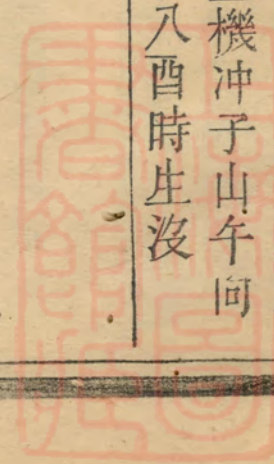 機冲子山午向
八酉時生没